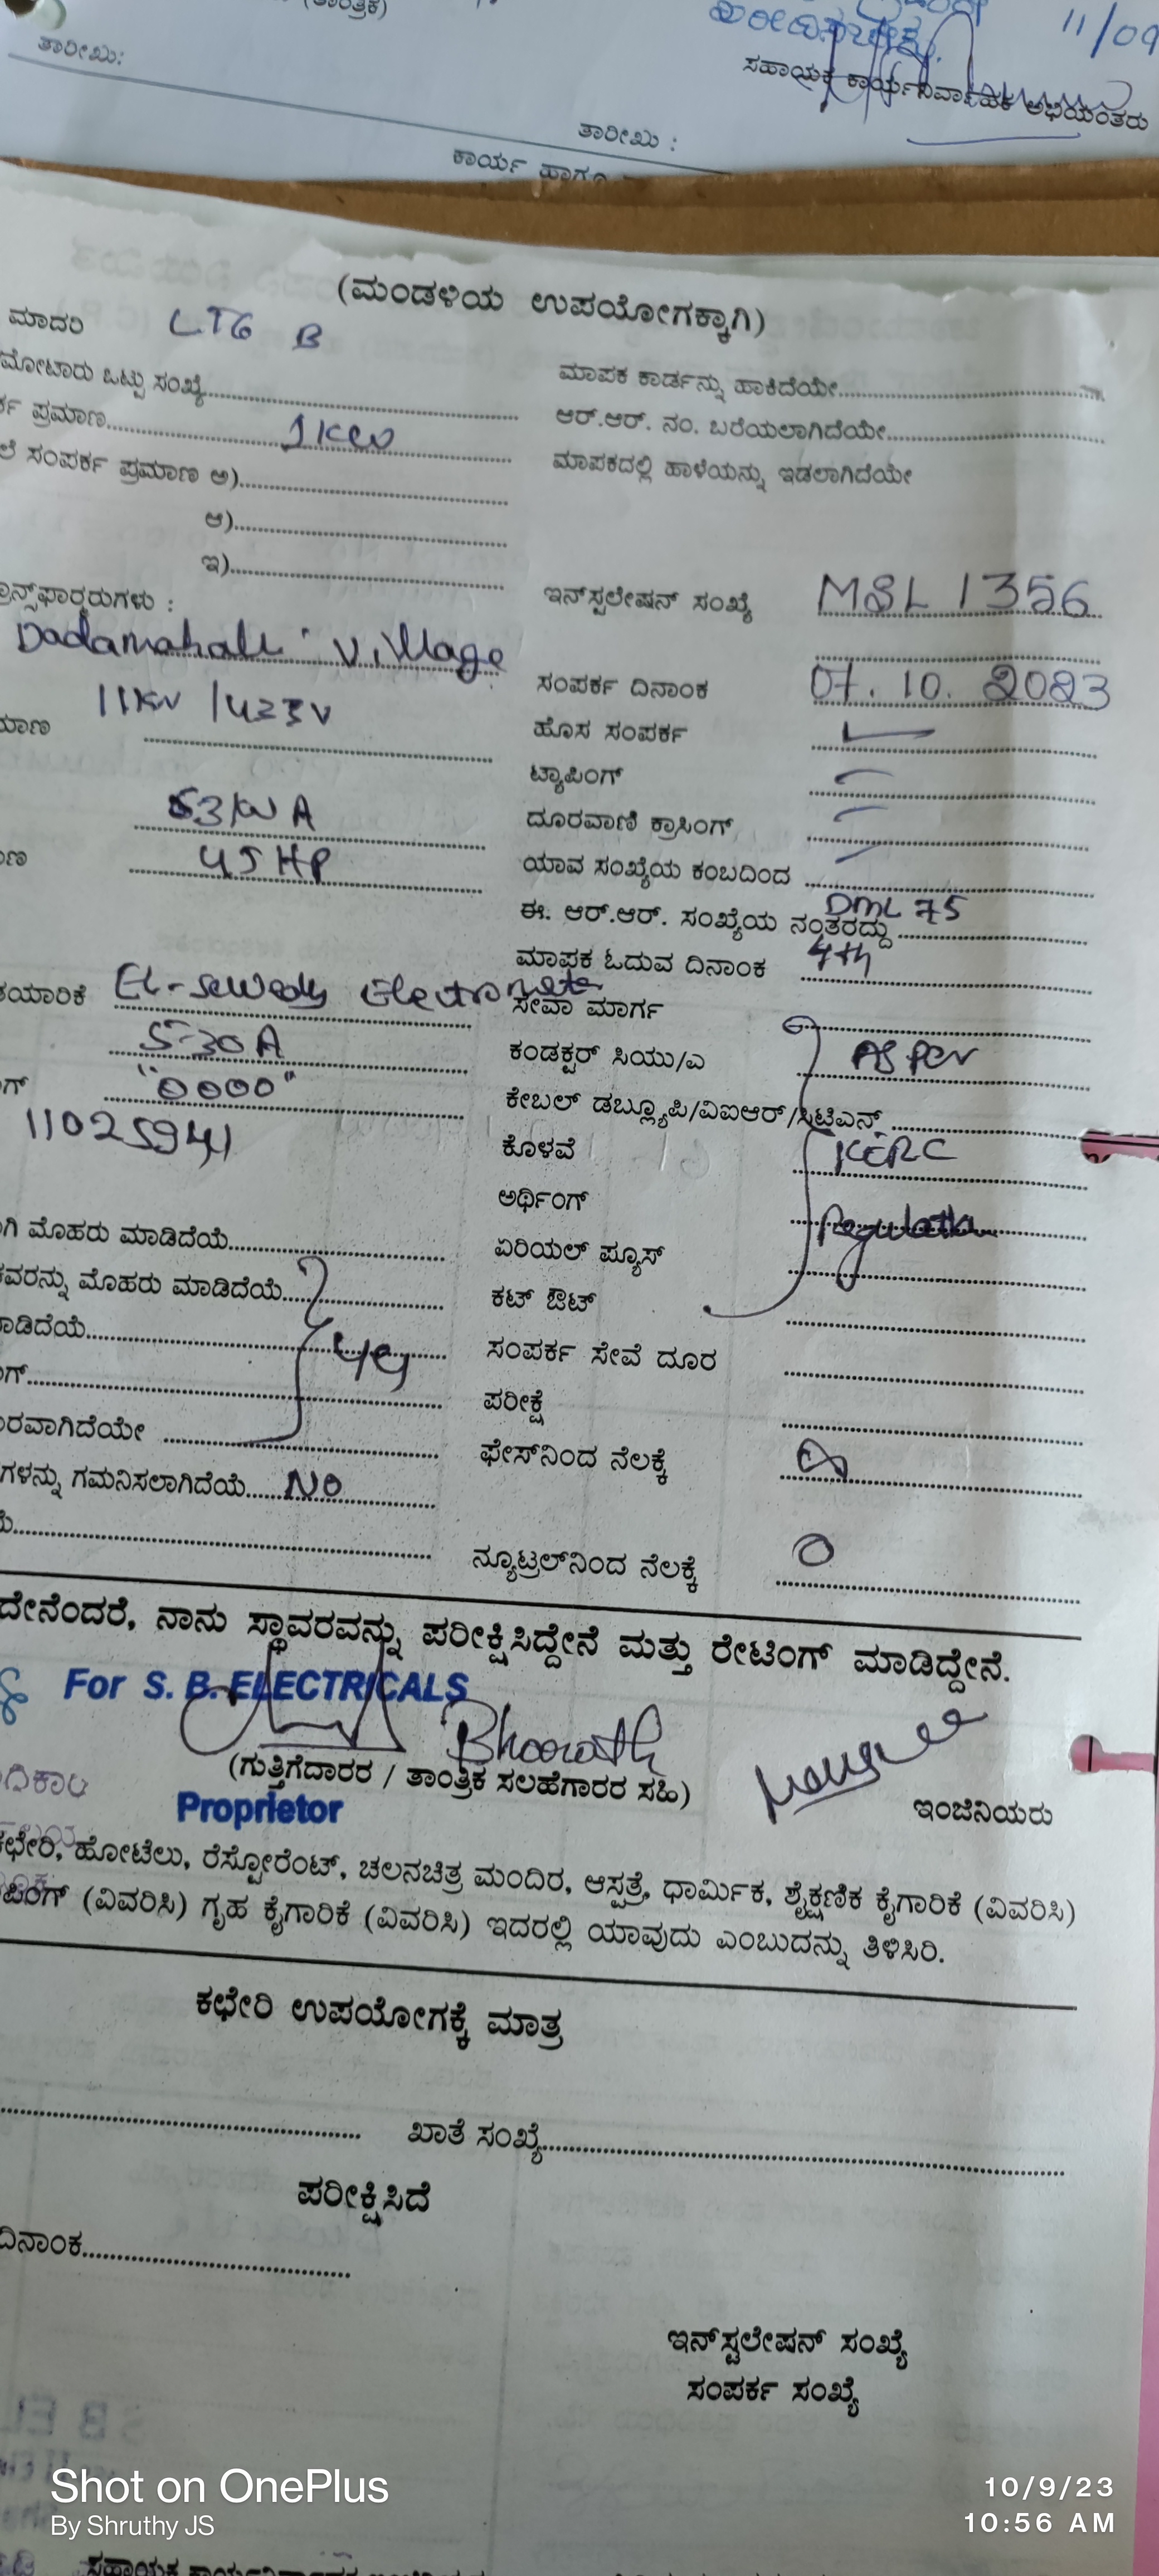 (ತಾಂತ್ರಿಕ)
11/09
ತಾರೀಖು:
ಸಹಾಯಕ ಕಾರ್ಯನಿರ್ವಾಹಕ ಅಭಿಯಂತರು
ತಾರೀಖು :
ಕಾರ್ಯ ಹಾಗೂ
(ಮಂಡಳಿಯ ಉಪಯೋಗಕ್ಕಾಗಿ)
ಮಾದರಿ LT6 B
ಮೋಟಾರು ಒಟ್ಟು ಸಂಖ್ಯೆ
ಮಾಪಕ ಕಾರ್ಡನ್ನು ಹಾಕಿದೆಯೇ
ಪ್ರಮಾಣ 1 KW
ಆರ್.ಆರ್. ನಂ. ಬರೆಯಲಾಗಿದೆಯೇ
ಸಂಪರ್ಕ ಪ್ರಮಾಣ ಅ)
ಮಾಪಕದಲ್ಲಿ ಹಾಳೆಯನ್ನು ಇಡಲಾಗಿದೆಯೇ
ಆ)
ಇ)
ಾನ್ಸ್‌ಫಾರ್ಮರುಗಳು :
ಇನ್‌ಸ್ಟಲೇಷನ್ ಸಂಖ್ಯೆ MSL 1356
Dadamahalli Village
ಸಂಪರ್ಕ ದಿನಾಂಕ 07.10.2023
11KV /433V
ಹೊಸ ಸಂಪರ್ಕ
ಟ್ಯಾಪಿಂಗ್
63KVA
ದೂರವಾಣಿ ಕ್ರಾಸಿಂಗ್
45 HP
ಯಾವ ಸಂಖ್ಯೆಯ ಕಂಬದಿಂದ
ಈ. ಆರ್.ಆರ್. ಸಂಖ್ಯೆಯ ನಂತರದ್ದು DML 75
ಮಾಪಕ ಓದುವ ದಿನಾಂಕ 4th
ತಯಾರಿಕೆ El-sewedy Electrometer
ಸೇವಾ ಮಾರ್ಗ
5-30A
ಕಂಡಕ್ಟರ್ ಸಿಯು/ಎ As per
"0000"
ಕೇಬಲ್ ಡಬ್ಲ್ಯೂಪಿ/ವಿಐಆರ್/ಸಿಟಿಎನ್
11025941
ಕೊಳವೆ KERC
ಅರ್ಥಿಂಗ್ Regulation
ಗಿ ಮೊಹರು ಮಾಡಿದೆಯೆ
ಏರಿಯಲ್ ಪ್ಯೂಸ್
ಕವರನ್ನು ಮೊಹರು ಮಾಡಿದೆಯೆ
ಕಟ್ ಔಟ್
ಮಾಡಿದೆಯೆ
ಸಂಪರ್ಕ ಸೇವೆ ದೂರ
ಪರೀಕ್ಷೆ
ರವಾಗಿದೆಯೇ
ಫೇಸ್‌ನಿಂದ ನೆಲಕ್ಕೆ ∞
ಗಳನ್ನು ಗಮನಿಸಲಾಗಿದೆಯೆ NO
ನ್ಯೂಟ್ರಲ್‌ನಿಂದ ನೆಲಕ್ಕೆ 0
ದೇನೆಂದರೆ, ನಾನು ಸ್ಥಾವರವನ್ನು ಪರೀಕ್ಷಿಸಿದ್ದೇನೆ ಮತ್ತು ರೇಟಿಂಗ್ ಮಾಡಿದ್ದೇನೆ.
For S. B. ELECTRICALS
Bharath
(ಗುತ್ತಿಗೆದಾರರ / ತಾಂತ್ರಿಕ ಸಲಹೆಗಾರರ ಸಹಿ)
Proprietor
ಇಂಜಿನಿಯರು
ಕಛೇರಿ, ಹೋಟೆಲು, ರೆಸ್ಟೋರೆಂಟ್, ಚಲನಚಿತ್ರ ಮಂದಿರ, ಆಸ್ಪತ್ರೆ, ಧಾರ್ಮಿಕ, ಶೈಕ್ಷಣಿಕ ಕೈಗಾರಿಕೆ (ವಿವರಿಸಿ)
ಪಿಂಗ್ (ವಿವರಿಸಿ) ಗೃಹ ಕೈಗಾರಿಕೆ (ವಿವರಿಸಿ) ಇದರಲ್ಲಿ ಯಾವುದು ಎಂಬುದನ್ನು ತಿಳಿಸಿರಿ.
ಕಛೇರಿ ಉಪಯೋಗಕ್ಕೆ ಮಾತ್ರ
ಖಾತೆ ಸಂಖ್ಯೆ
ಪರೀಕ್ಷಿಸಿದೆ
ದಿನಾಂಕ
ಇನ್‌ಸ್ಟಲೇಷನ್ ಸಂಖ್ಯೆ
ಸಂಪರ್ಕ ಸಂಖ್ಯೆ
Shot on OnePlus
By Shruthy JS
10/9/23
10:56 AM